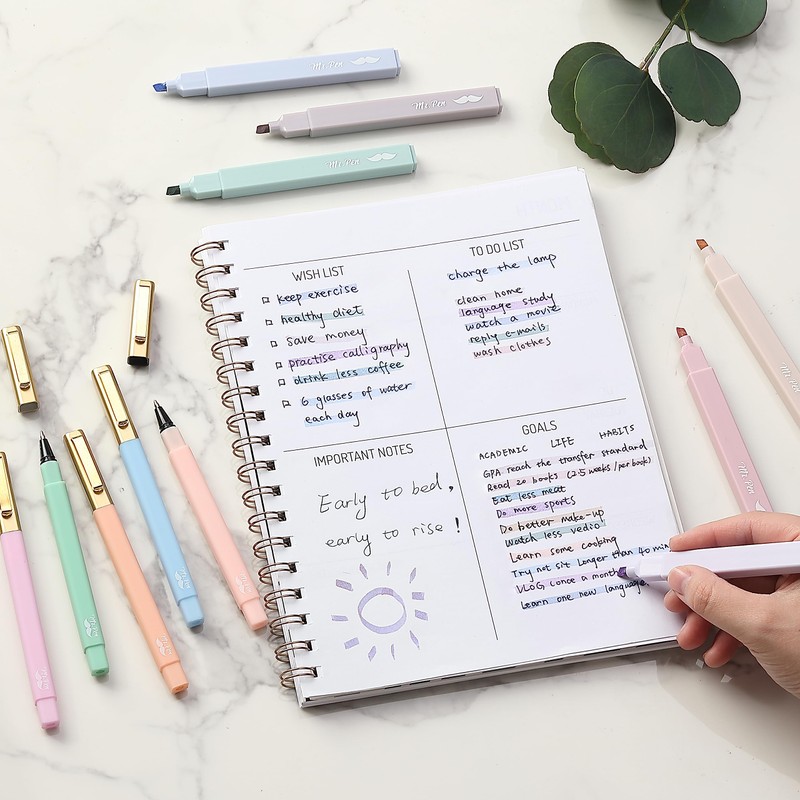 Mr. Pen
Mr. Pen
Mr. Pen
WISH LIST
keep exercise
healthy diet
save money
practise calligraphy
drink less coffee
6 glasses of water
each day
TO DO LIST
charge the lamp
clean home
language study
watch a movie
reply e-mails
wash clothes
IMPORTANT NOTES
Early to bed,
early to rise!
GOALS
ACADEMIC LIFE HABITS
GPA reach the transfer standard
Read 20 books (2.5 weeks/per book)
Eat less meat
Do more sports
Do better make-up
Watch less vedio
Learn some cooking
Try not sit longer than 40 min
VLOG (once a month
Learn one new language
Mr. Pen
Mr. Pen